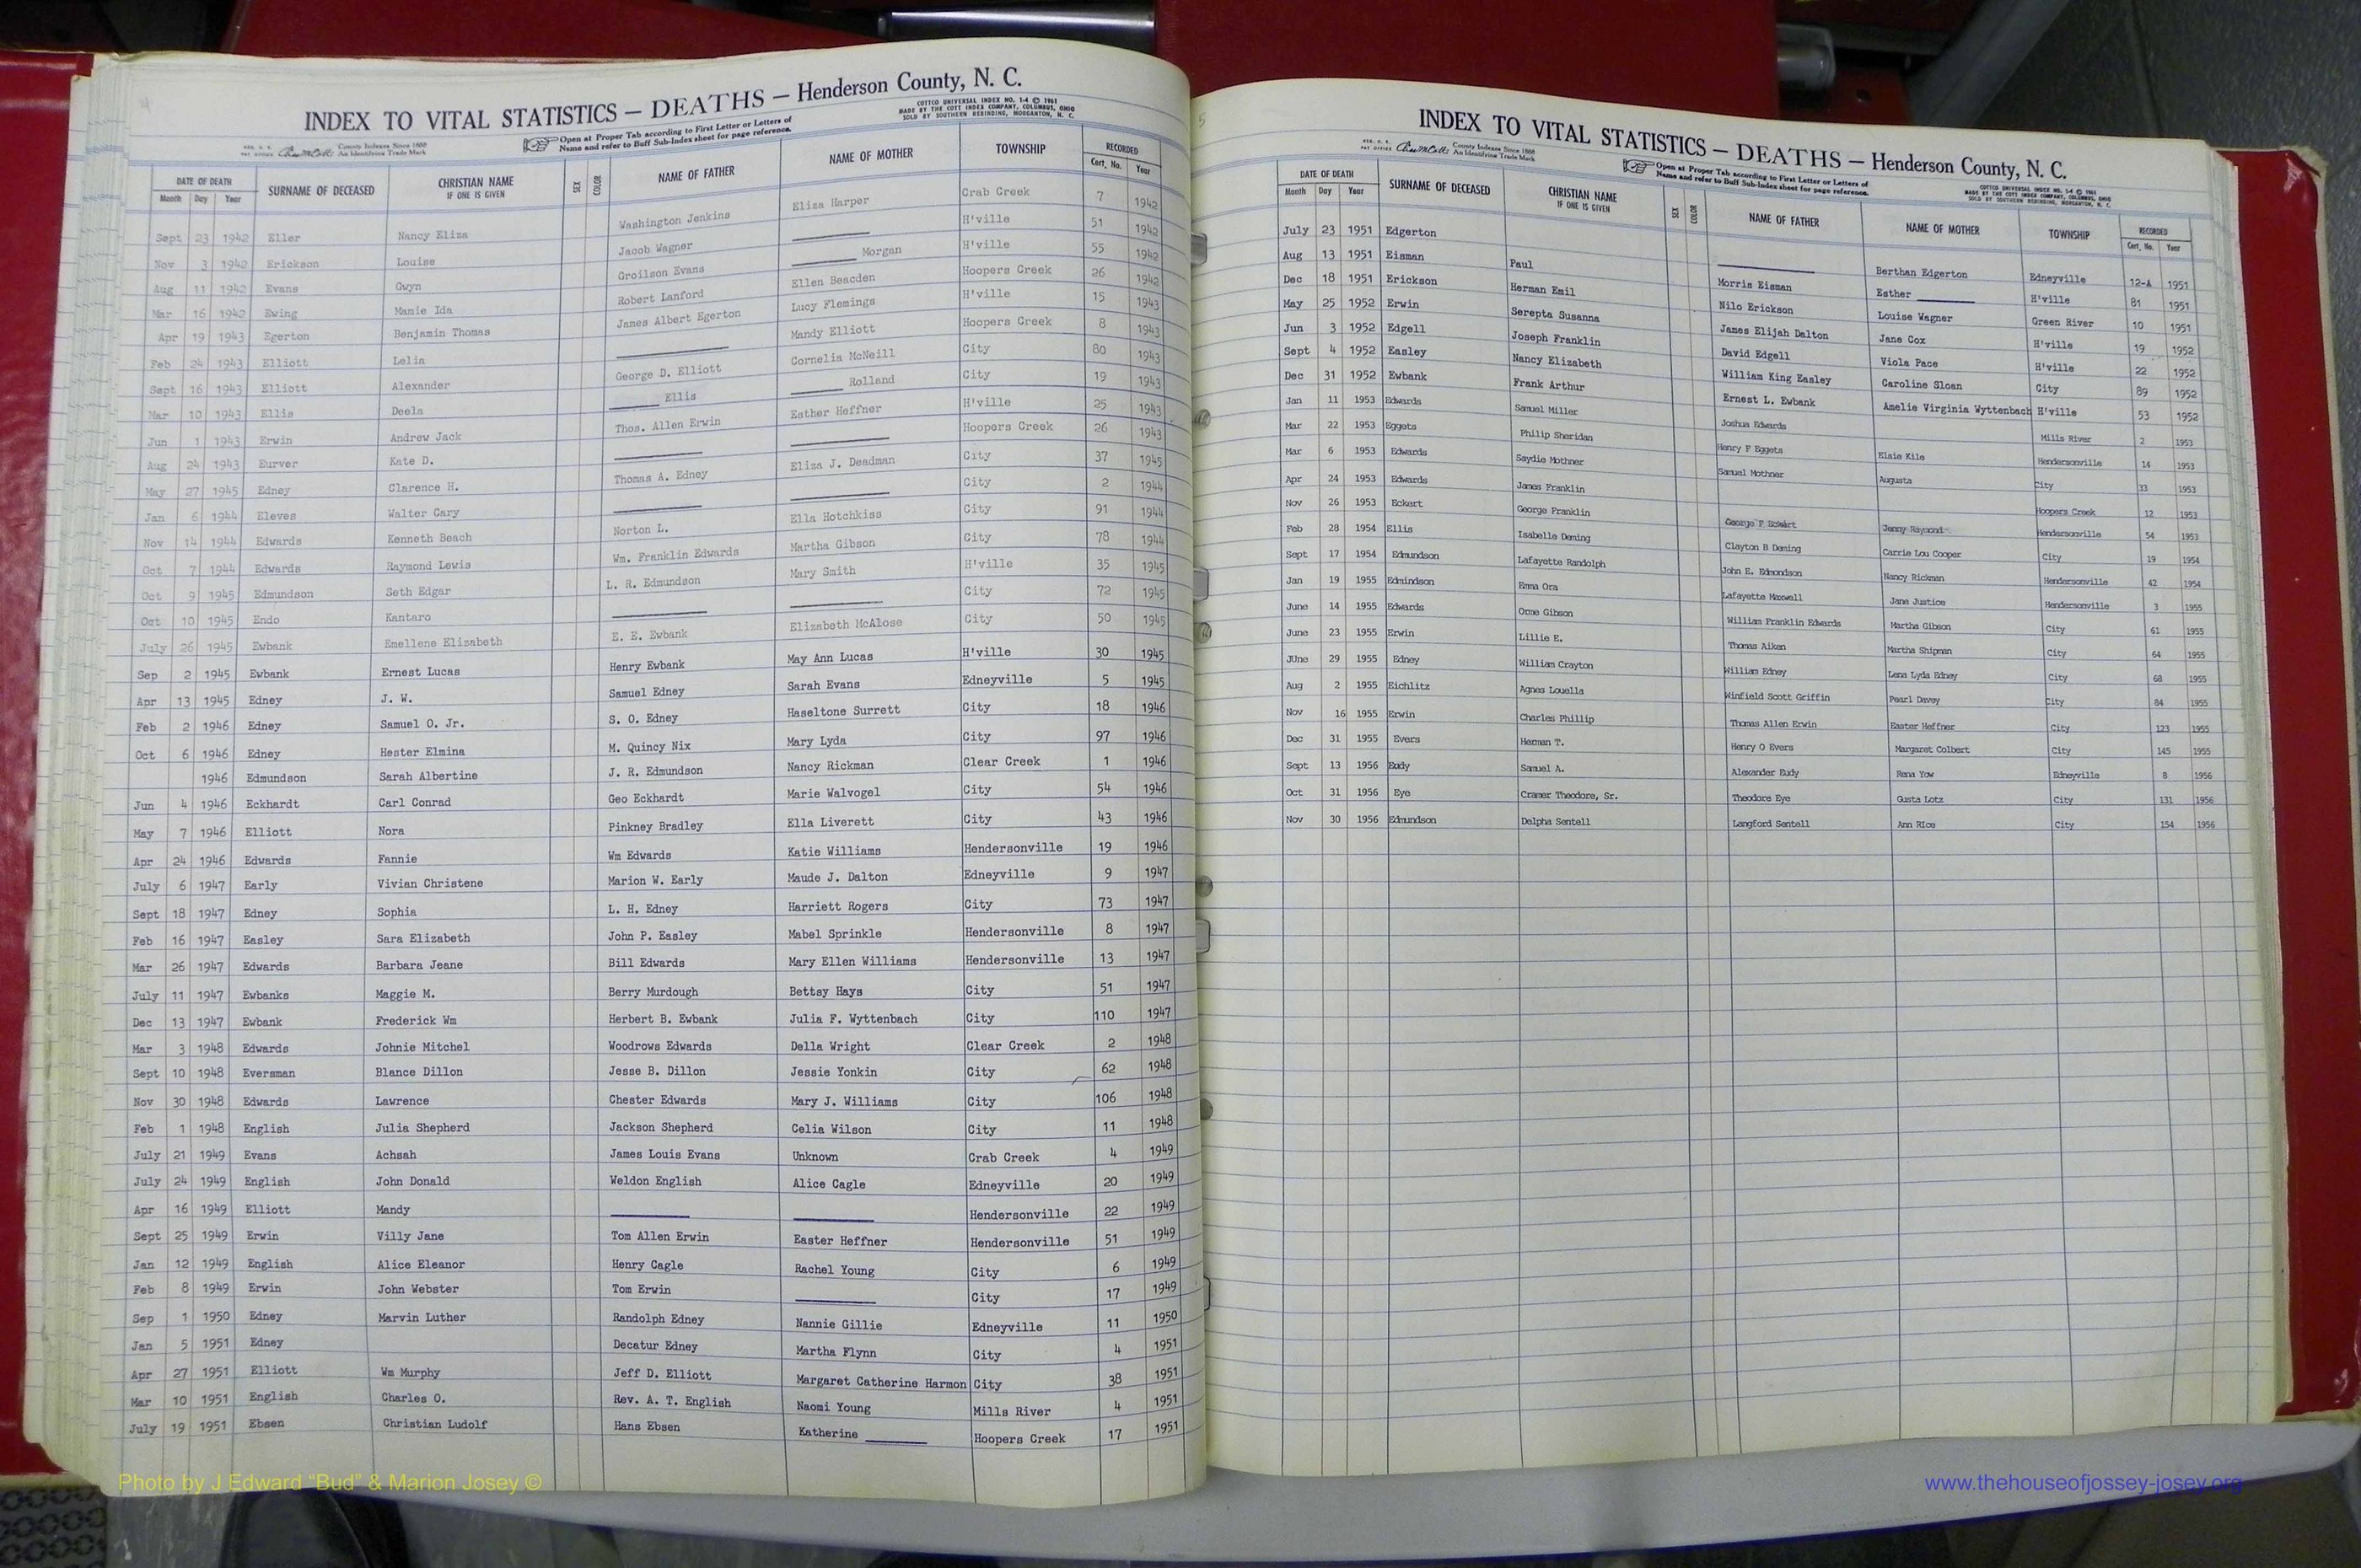 INDEX TO VITAL STATISTICS — DEATHS — Henderson County, N. C.
COTTCO UNIVERSAL INDEX NO. 1-4 © 1961
MADE BY THE COTT INDEX COMPANY, COLUMBUS, OHIO
SOLD BY SOUTHERN REBINDING, MORGANTON, N. C.
County Indexes Since 1888
An Identifying Trade Mark
Open at Proper Tab according to First Letter or Letters of
Name and refer to Buff Sub-Index sheet for page reference.
DATE OF DEATH SURNAME OF DECEASED CHRISTIAN NAME SEX COLOR NAME OF FATHER NAME OF MOTHER TOWNSHIP RECORDED
Month Day Year IF ONE IS GIVEN Cert. No. Year
Sept 23 1942 Eller Nancy Eliza Washington Jenkins Eliza Harper Crab Creek 7 1942
Nov 3 1942 Erickson Louise Jacob Wagner H'ville 51 1942
Aug 11 1942 Evans Gwyn Groilson Evans Morgan H'ville 55 1942
Mar 16 1942 Ewing Mamie Ida Robert Lanford Ellen Beacden Hoopers Creek 26 1942
Apr 19 1943 Egerton Benjamin Thomas James Albert Egerton Lucy Flemings H'ville 15 1943
Feb 24 1943 Elliott Lelia Mandy Elliott Hoopers Creek 8 1943
Sept 16 1943 Elliott Alexander George D. Elliott Cornelia McNeill City 80 1943
Mar 10 1943 Ellis Deela Ellis Rolland City 19 1943
Jun 1 1943 Erwin Andrew Jack Thos. Allen Erwin Esther Heffner H'ville 25 1943
Aug 24 1943 Eurver Kate D. Hoopers Creek 26 1943
May 27 1945 Edney Clarence H. Thomas A. Edney Eliza J. Deadman City 37 1945
Jan 6 1944 Eleves Walter Cary City 2 1944
Nov 14 1944 Edwards Kenneth Beach Norton L. Ella Hotchkiss City 91 1944
Oct 7 1944 Edwards Raymond Lewis Wm. Franklin Edwards Martha Gibson City 78 1944
Oct 9 1945 Edmundson Seth Edgar L. R. Edmundson Mary Smith H'ville 35 1945
Oct 10 1945 Endo Kantaro City 72 1945
July 26 1945 Ewbank Emellene Elizabeth E. E. Ewbank Elizabeth McAlose City 50 1945
Sep 2 1945 Ewbank Ernest Lucas Henry Ewbank May Ann Lucas H'ville 30 1945
Apr 13 1945 Edney J. W. Samuel Edney Sarah Evans Edneyville 5 1945
Feb 2 1946 Edney Samuel O. Jr. S. O. Edney Haseltone Surrett City 18 1946
Oct 6 1946 Edney Hester Elmina M. Quincy Nix Mary Lyda City 97 1946
1946 Edmundson Sarah Albertine J. R. Edmundson Nancy Rickman Clear Creek 1 1946
Jun 4 1946 Eckhardt Carl Conrad Geo Eckhardt Marie Walvogel City 54 1946
May 7 1946 Elliott Nora Pinkney Bradley Ella Liverett City 43 1946
Apr 24 1946 Edwards Fannie Wm Edwards Katie Williams Hendersonville 19 1946
July 6 1947 Early Vivian Christene Marion W. Early Maude J. Dalton Edneyville 9 1947
Sept 18 1947 Edney Sophia L. H. Edney Harriett Rogers City 73 1947
Feb 16 1947 Easley Sara Elizabeth John P. Easley Mabel Sprinkle Hendersonville 8 1947
Mar 26 1947 Edwards Barbara Jeane Bill Edwards Mary Ellen Williams Hendersonville 13 1947
July 11 1947 Ewbanks Maggie M. Berry Murdough Bettsy Hays City 51 1947
Dec 13 1947 Ewbank Frederick Wm Herbert B. Ewbank Julia F. Wyttenbach City 110 1947
Mar 3 1948 Edwards Johnie Mitchel Woodrows Edwards Della Wright Clear Creek 2 1948
Sept 10 1948 Eversman Blance Dillon Jesse B. Dillon Jessie Yonkin City 62 1948
Nov 30 1948 Edwards Lawrence Chester Edwards Mary J. Williams City 106 1948
Feb 1 1948 English Julia Shepherd Jackson Shepherd Celia Wilson City 11 1948
July 21 1949 Evans Achsah James Louis Evans Unknown Crab Creek 4 1949
July 24 1949 English John Donald Weldon English Alice Cagle Edneyville 20 1949
Apr 16 1949 Elliott Mandy Hendersonville 22 1949
Sept 25 1949 Erwin Villy Jane Tom Allen Erwin Easter Heffner Hendersonville 51 1949
Jan 12 1949 English Alice Eleanor Henry Cagle Rachel Young City 6 1949
Feb 8 1949 Erwin John Webster Tom Erwin City 17 1949
Sep 1 1950 Edney Marvin Luther Randolph Edney Nannie Gillie Edneyville 11 1950
Jan 5 1951 Edney Decatur Edney Martha Flynn City 4 1951
Apr 27 1951 Elliott Wm Murphy Jeff D. Elliott Margaret Catherine Harmon City 38 1951
Mar 10 1951 English Charles O. Rev. A. T. English Naomi Young Mills River 4 1951
July 19 1951 Ebsen Christian Ludolf Hans Ebsen Katherine Hoopers Creek 17 1951
5
INDEX TO VITAL STATISTICS — DEATHS — Henderson County, N. C.
COTTCO UNIVERSAL INDEX NO. 1-4 © 1961
MADE BY THE COTT INDEX COMPANY, COLUMBUS, OHIO
SOLD BY SOUTHERN REBINDING, MORGANTON, N. C.
County Indexes Since 1888
An Identifying Trade Mark
Open at Proper Tab according to First Letter or Letters of
Name and refer to Buff Sub-Index sheet for page reference.
DATE OF DEATH SURNAME OF DECEASED CHRISTIAN NAME SEX COLOR NAME OF FATHER NAME OF MOTHER TOWNSHIP RECORDED
Month Day Year IF ONE IS GIVEN Cert. No. Year
July 23 1951 Edgerton Berthan Edgerton Edneyville 12-A 1951
Aug 13 1951 Eisman Paul Morris Eisman Esther H'ville 81 1951
Dec 18 1951 Erickson Herman Emil Nilo Erickson Louise Wagner Green River 10 1951
May 25 1952 Erwin Serepta Susanna James Elijah Dalton Jane Cox H'ville 19 1952
Jun 3 1952 Edgell Joseph Franklin David Edgell Viola Pace H'ville 22 1952
Sept 4 1952 Easley Nancy Elizabeth William King Easley Caroline Sloan City 89 1952
Dec 31 1952 Ewbank Frank Arthur Ernest L. Ewbank Amelie Virginia Wyttenbach H'ville 53 1952
Jan 11 1953 Edwards Samuel Miller Joshua Edwards Mills River 2 1953
Mar 22 1953 Eggets Philip Sheridan Henry F Eggets Elsie Kile Hendersonville 14 1953
Mar 6 1953 Edwards Saydie Mothner Samuel Mothner Augusta City 33 1953
Apr 24 1953 Edwards James Franklin Hoopers Creek 12 1953
Nov 26 1953 Eckert George Franklin George F Eckert Jenny Raymond Hendersonville 54 1953
Feb 28 1954 Ellis Isabelle Deming Clayton B Deming Carrie Lou Cooper City 19 1954
Sept 17 1954 Edmundson Lafayette Randolph John E. Edmondson Nancy Rickman Hendersonville 42 1954
Jan 19 1955 Edmindson Emma Ora Lafayette Maxwell Jane Justice Hendersonville 3 1955
June 14 1955 Edwards Orme Gibson William Franklin Edwards Martha Gibson City 61 1955
June 23 1955 Erwin Lillie E. Thomas Aiken Martha Shipman City 64 1955
JUne 29 1955 Edney William Crayton William Edney Lena Lyda Edney City 68 1955
Aug 2 1955 Eichlitz Agnes Louella Winfield Scott Griffin Pearl Davey City 84 1955
Nov 16 1955 Erwin Charles Phillip Thomas Allen Erwin Easter Heffner City 123 1955
Dec 31 1955 Evers Herman T. Henry O Evers Margaret Colbert City 145 1955
Sept 13 1956 Eudy Samuel A. Alexander Eudy Rena Yow Edneyville 8 1956
Oct 31 1956 Eye Cramer Theodore, Sr. Theodore Eye Gusta Lotz City 131 1956
Nov 30 1956 Edmundson Delpha Sentell Langford Sentell Ann RIce City 154 1956
Photo by J Edward “Bud” & Marion Josey ©
www.thehouseofjossey-josey.org